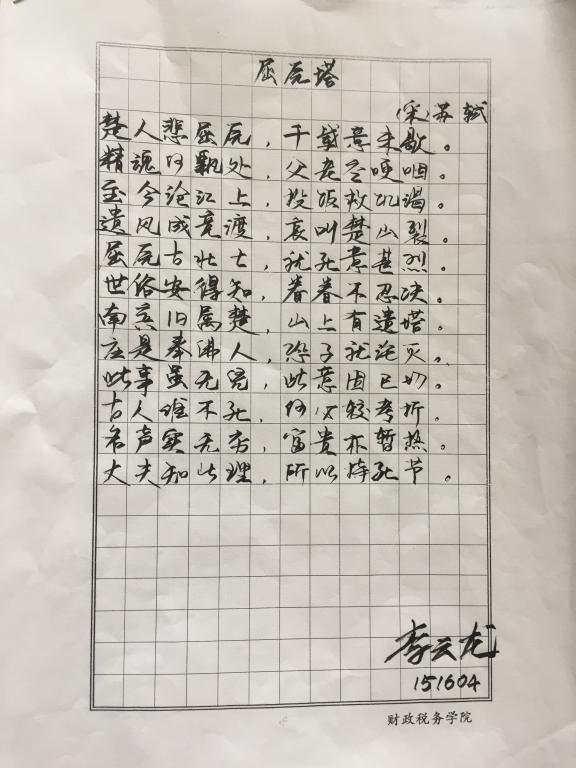 屈原塔
(宋)苏轼
楚人悲屈原，千载意未歇。
精魂何飘处，父老空哽咽。
至今沧江上，投饭救饥渴。
遗风成竞渡，哀叫楚山裂。
屈原古壮士，就死意甚烈。
世俗安得知，眷眷不忍决。
南宾旧属楚，山上有遗塔。
应是奉佛人，恐子就沦灭。
此事虽无凭，此意固已切。
古人谁不死，何必较考折。
名声实无穷，富贵亦暂热。
大夫知此理，所以持死节。
李云龙
151604
财政税务学院